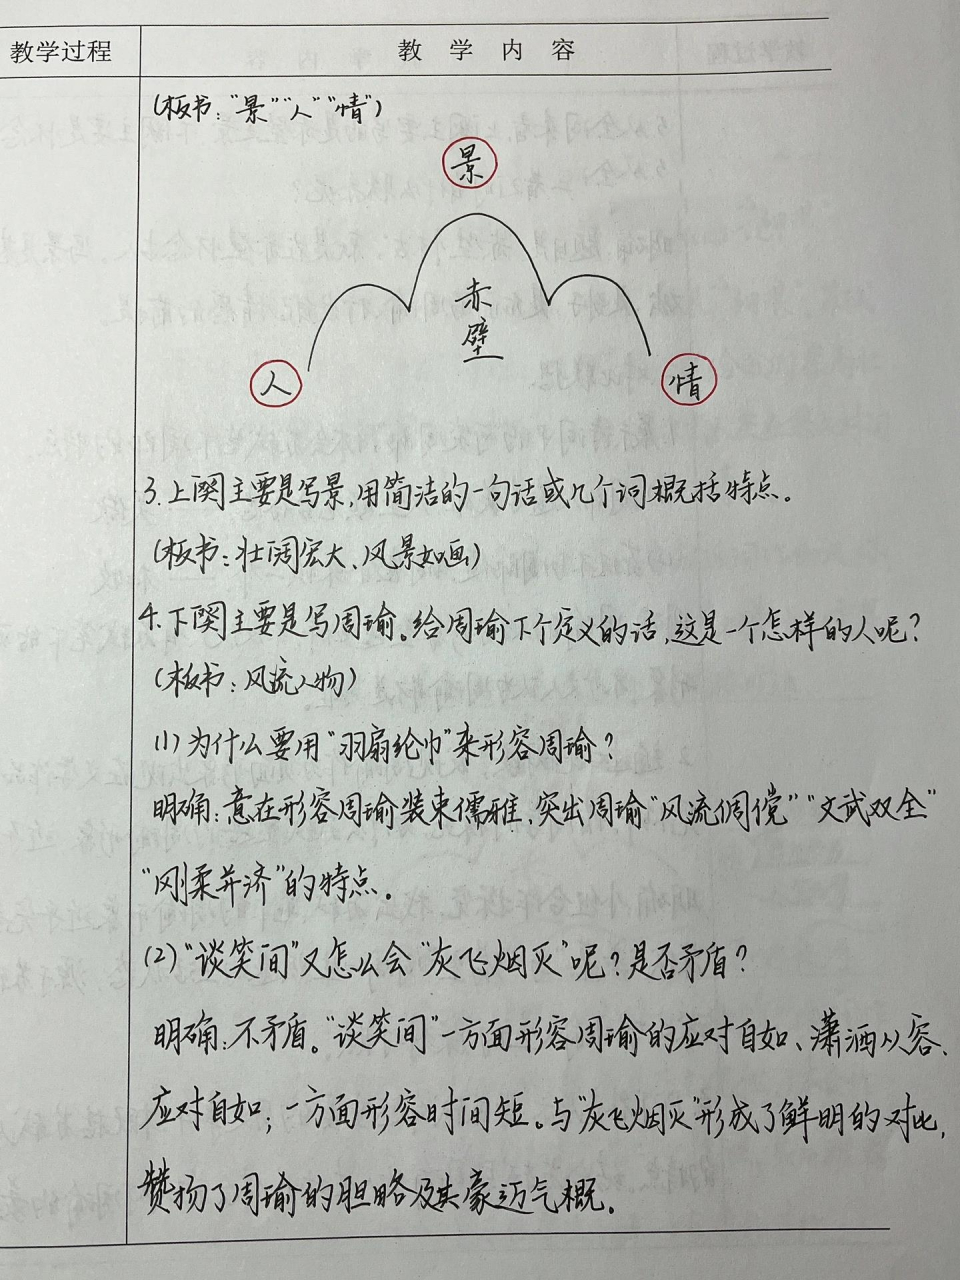 教学过程 教学内容
(板书:"景""人""情")
景
赤
壁
人 情
3.上阕主要是写景,用简洁的一句话或几个词概括特点。
(板书:壮阔宏大、风景如画)
4.下阕主要是写周瑜。给周瑜下个定义的话,这是一个怎样的人呢?
(板书:风流人物)
(1)为什么要用"羽扇纶巾"来形容周瑜?
明确:意在形容周瑜装束儒雅,突出周瑜"风流倜傥""文武双全"
"刚柔并济"的特点。
(2)"谈笑间"又怎么会"灰飞烟灭"呢?是否矛盾?
明确:不矛盾。"谈笑间"一方面形容周瑜的应对自如、潇洒从容、
应对自如;一方面形容时间短。与"灰飞烟灭"形成了鲜明的对比,
赞扬了周瑜的胆略及其豪迈气概。